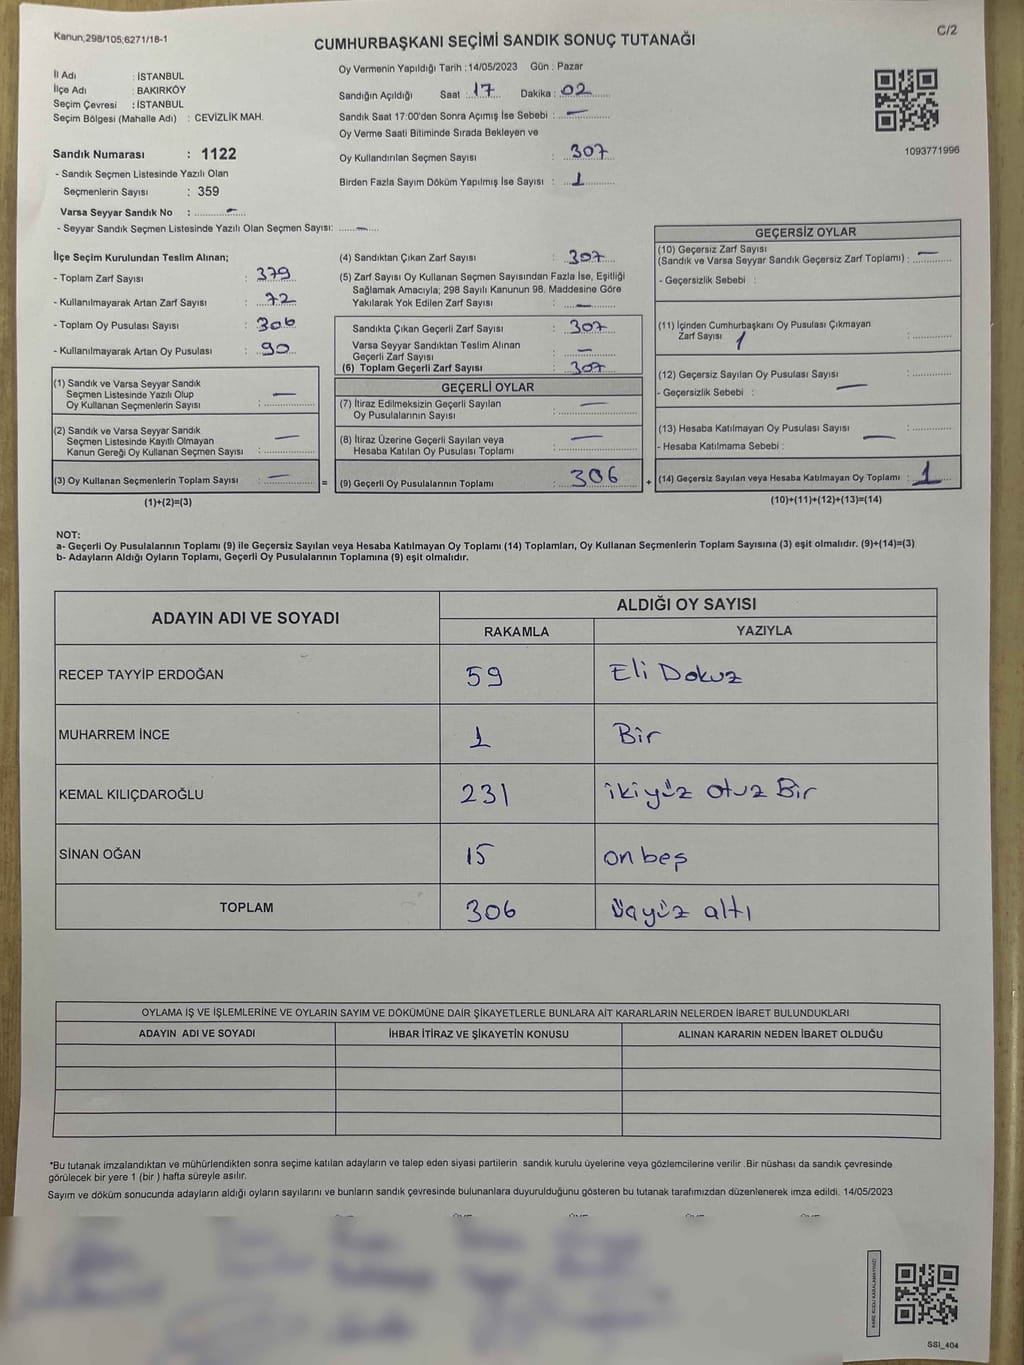 Kanun;298/105;6271/18-1
C/2
CUMHURBAŞKANI SEÇİMİ SANDIK SONUÇ TUTANAĞI
İl Adı : İSTANBUL
İlçe Adı : BAKIRKÖY
Seçim Çevresi : İSTANBUL
Seçim Bölgesi (Mahalle Adı) : CEVİZLİK MAH.
Sandık Numarası : 1122
- Sandık Seçmen Listesinde Yazılı Olan
Seçmenlerin Sayısı : 359
Varsa Seyyar Sandık No : –
- Seyyar Sandık Seçmen Listesinde Yazılı Olan Seçmen Sayısı: –
Oy Vermenin Yapıldığı Tarih : 14/05/2023 Gün : Pazar
Sandığın Açıldığı Saat : 17 Dakika : 02
Sandık Saat 17:00'den Sonra Açılmış İse Sebebi : –
Oy Verme Saati Bitiminde Sırada Bekleyen ve
Oy Kullandırılan Seçmen Sayısı : 307
Birden Fazla Sayım Döküm Yapılmış İse Sayısı : 1
1093771996
İlçe Seçim Kurulundan Teslim Alınan;
- Toplam Zarf Sayısı : 379
- Kullanılmayarak Artan Zarf Sayısı : 72
- Toplam Oy Pusulası Sayısı : 306
- Kullanılmayarak Artan Oy Pusulası : 90
(1) Sandık ve Varsa Seyyar Sandık
Seçmen Listesinde Yazılı Olup
Oy Kullanan Seçmenlerin Sayısı : –
(2) Sandık ve Varsa Seyyar Sandık
Seçmen Listesinde Kayıtlı Olmayan
Kanun Gereği Oy Kullanan Seçmen Sayısı : –
(3) Oy Kullanan Seçmenlerin Toplam Sayısı : –
(1)+(2)=(3)
=
(4) Sandıktan Çıkan Zarf Sayısı : 307
(5) Zarf Sayısı Oy Kullanan Seçmen Sayısından Fazla İse, Eşitliği
Sağlamak Amacıyla; 298 Sayılı Kanunun 98. Maddesine Göre
Yakılarak Yok Edilen Zarf Sayısı : –
Sandıkta Çıkan Geçerli Zarf Sayısı : 307
Varsa Seyyar Sandıktan Teslim Alınan
Geçerli Zarf Sayısı : –
(6) Toplam Geçerli Zarf Sayısı : 307
GEÇERLİ OYLAR
(7) İtiraz Edilmeksizin Geçerli Sayılan
Oy Pusulalarının Sayısı : –
(8) İtiraz Üzerine Geçerli Sayılan veya
Hesaba Katılan Oy Pusulası Toplamı : –
(9) Geçerli Oy Pusulalarının Toplamı : 306
+
GEÇERSİZ OYLAR
(10) Geçersiz Zarf Sayısı
(Sandık ve Varsa Seyyar Sandık Geçersiz Zarf Toplamı) : –
- Geçersizlik Sebebi :
(11) İçinden Cumhurbaşkanı Oy Pusulası Çıkmayan
Zarf Sayısı 1 :
(12) Geçersiz Sayılan Oy Pusulası Sayısı :
- Geçersizlik Sebebi : –
(13) Hesaba Katılmayan Oy Pusulası Sayısı – :
- Hesaba Katılmama Sebebi :
(14) Geçersiz Sayılan veya Hesaba Katılmayan Oy Toplamı : 1
(10)+(11)+(12)+(13)=(14)
NOT:
a- Geçerli Oy Pusulalarının Toplamı (9) ile Geçersiz Sayılan veya Hesaba Katılmayan Oy Toplamı (14) Toplamları, Oy Kullanan Seçmenlerin Toplam Sayısına (3) eşit olmalıdır. (9)+(14)=(3)
b- Adayların Aldığı Oyların Toplamı, Geçerli Oy Pusulalarının Toplamına (9) eşit olmalıdır.
ADAYIN ADI VE SOYADI ALDIĞI OY SAYISI
RAKAMLA YAZIYLA
RECEP TAYYİP ERDOĞAN 59 Eli Dokuz
MUHARREM İNCE 1 Bir
KEMAL KILIÇDAROĞLU 231 ikiyüz otuz Bir
SİNAN OĞAN 15 on beş
TOPLAM 306 üçyüz altı
OYLAMA İŞ VE İŞLEMLERİNE VE OYLARIN SAYIM VE DÖKÜMÜNE DAİR ŞİKAYETLERLE BUNLARA AİT KARARLARIN NELERDEN İBARET BULUNDUKLARI
ADAYIN ADI VE SOYADI İHBAR İTİRAZ VE ŞİKAYETİN KONUSU ALINAN KARARIN NEDEN İBARET OLDUĞU
*Bu tutanak imzalandıktan ve mühürlendikten sonra seçime katılan adayların ve talep eden siyasi partilerin sandık kurulu üyelerine veya gözlemcilerine verilir .Bir nüshası da sandık çevresinde
görülecek bir yere 1 (bir ) hafta süreyle asılır.
Sayım ve döküm sonucunda adayların aldığı oyların sayılarını ve bunların sandık çevresinde bulunanlara duyurulduğunu gösteren bu tutanak tarafımızdan düzenlenerek imza edildi. 14/05/2023
KARE KODU KARALAMAYINIZ!
SSI_404